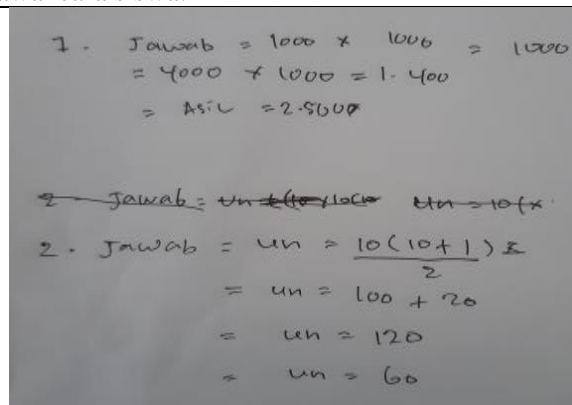 1. Jawab = 1000 x 1000 = 1000
= 4000 x 1000 = 1.400
= Asil = 2.5000
2 Jawab = Un Un = 10 (x
2. Jawab = un = 10(10+1)
2
= un = 100 + 20
= un = 120
= un = 60